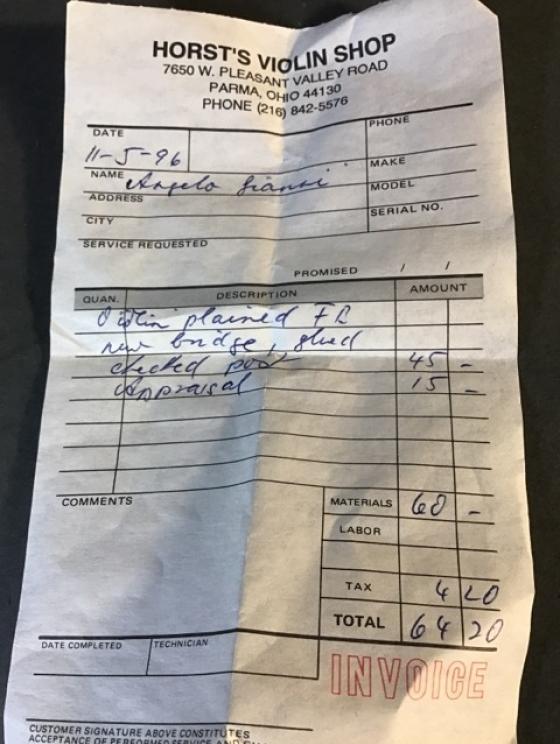 HORST'S VIOLIN SHOP
7650 W. PLEASANT VALLEY ROAD
PARMA, OHIO 44130
PHONE (216) 842-5576
DATE
PHONE
11-5-96
MAKE
NAME Angelo
MODEL
ADDRESS
SERIAL NO.
CITY
SERVICE REQUESTED
PROMISED / /
QUAN. DESCRIPTION AMOUNT
Violin plained FB
new bridge, glued
checked post 45 -
Appraisal 15 -
COMMENTS
MATERIALS 60 -
LABOR
TAX 4 20
TOTAL 64 20
DATE COMPLETED TECHNICIAN
INVOICE
CUSTOMER SIGNATURE ABOVE CONSTITUTES
ACCEPTANCE OF PERFORMED SERVICE AND